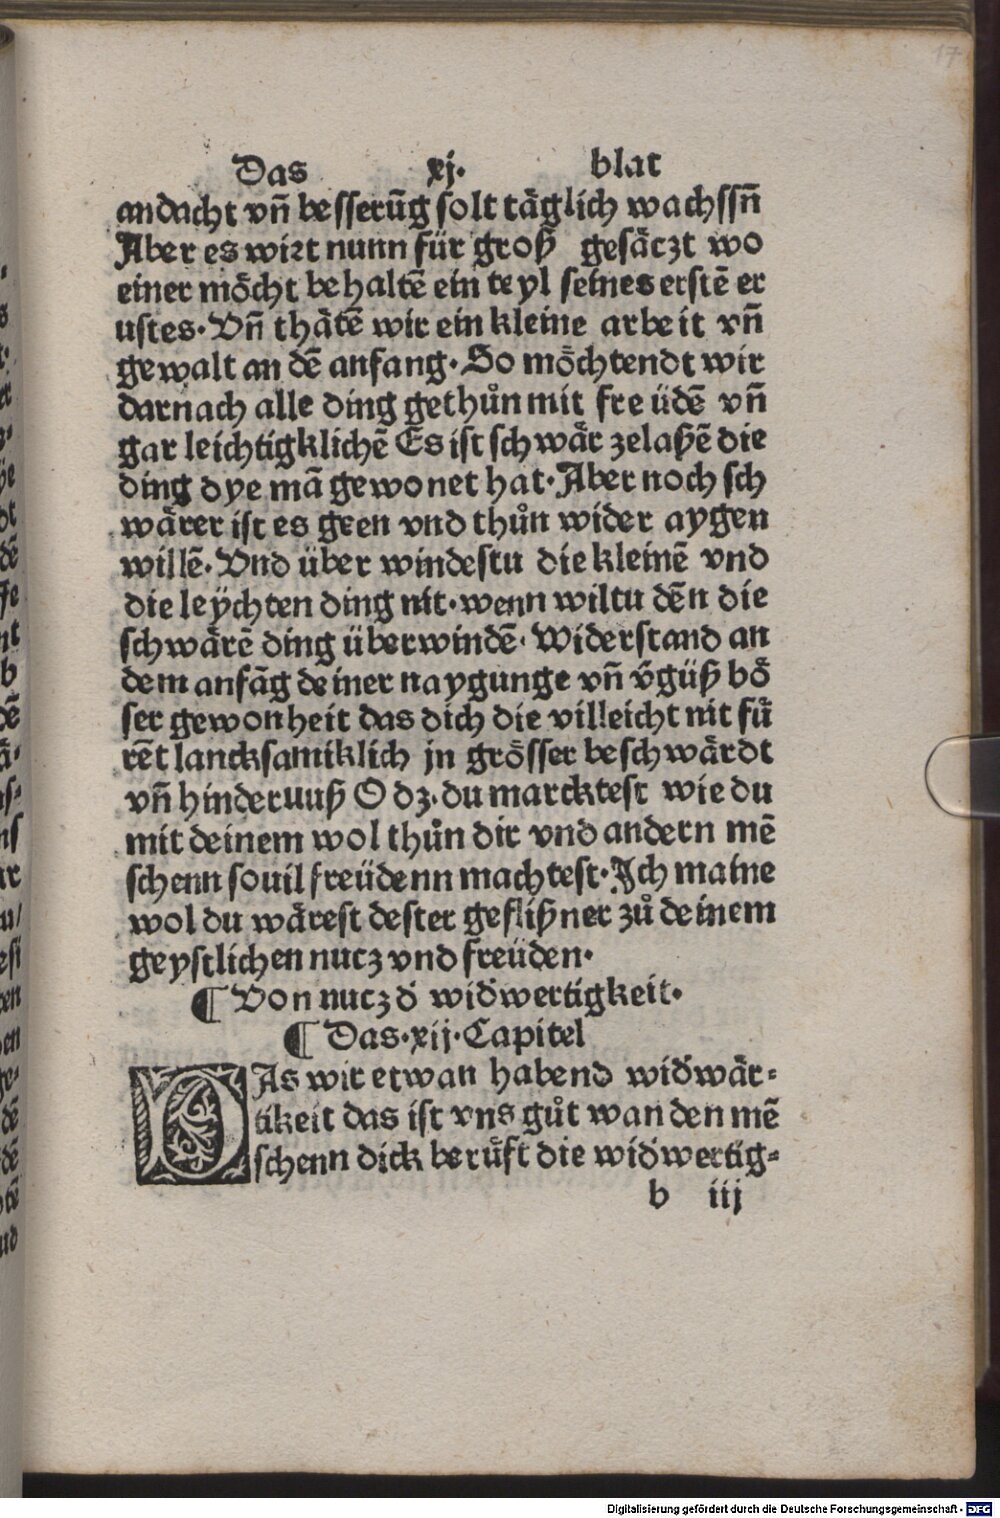 17
Das xj. blat
andacht vñ besserũg solt täglich wachssñ
Aber es wirt nunn für groß gesäczt wo
einer möcht behaltẽ ein teyl seines erstẽ er
ustes. Vñ thätẽ wir ein kleine arbeit vñ
gewalt an dẽ anfang. So möchtendt wir
darnach alle ding gethůn mit freüdẽ vñ
gar leichtigklichẽ Es ist schwär zelaßẽ die
ding dye mã gewonet hat. Aber noch sch
wärer ist es geen vnd thůn wider aygen
willẽ. Vnd über windestu die kleinẽ vnd
die leÿchten ding nit. wenn wiltu dẽn die
schwärẽ ding überwindẽ. Widerstand an
dem anfãg deiner naygunge vñ ṽgüß bö
ser gewonheit das dich die villeicht nit fü
rẽt lancksamiklich jn grösser beschwärdt
vñ hinderuuß O dz. du marcktest wie du
mit deinem wol thůn dir vnd andern mẽ
schenn souil freüdenn machtest. Ich maine
wol du wärest dester geflißner zů deinem
geystlichen nucz vnd freüden.
¶ Von nucz d̕ wid̕wertigkeit.
¶ Das .xij. Capitel
DAs wir etwan habend wid̕wär⸗
tikeit das ist vns gůt wan den mẽ
schenn dick berůft die wid̕wertig⸗
b iij
Digitalisierung gefördert durch die Deutsche Forschungsgemeinschaft - DFG